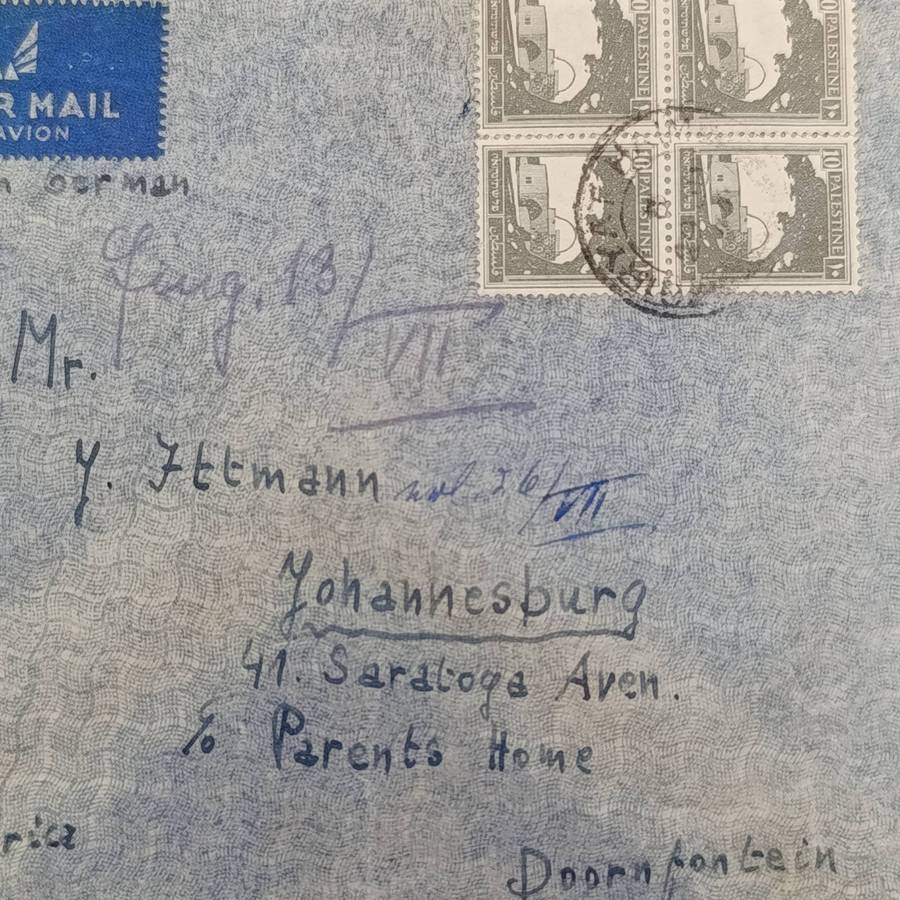 R MAIL
AVION
10 PALESTINE 10 PALESTINE
פלשתינה א״י
فلسطين
10 PALESTINE 10 PALESTINE
فلسطين
n German
13/VII
Mr.
Y. Ittmann 26/VII
Johannesburg
41. Saratoga Aven.
c/o Parents Home
rica
Doornfontein